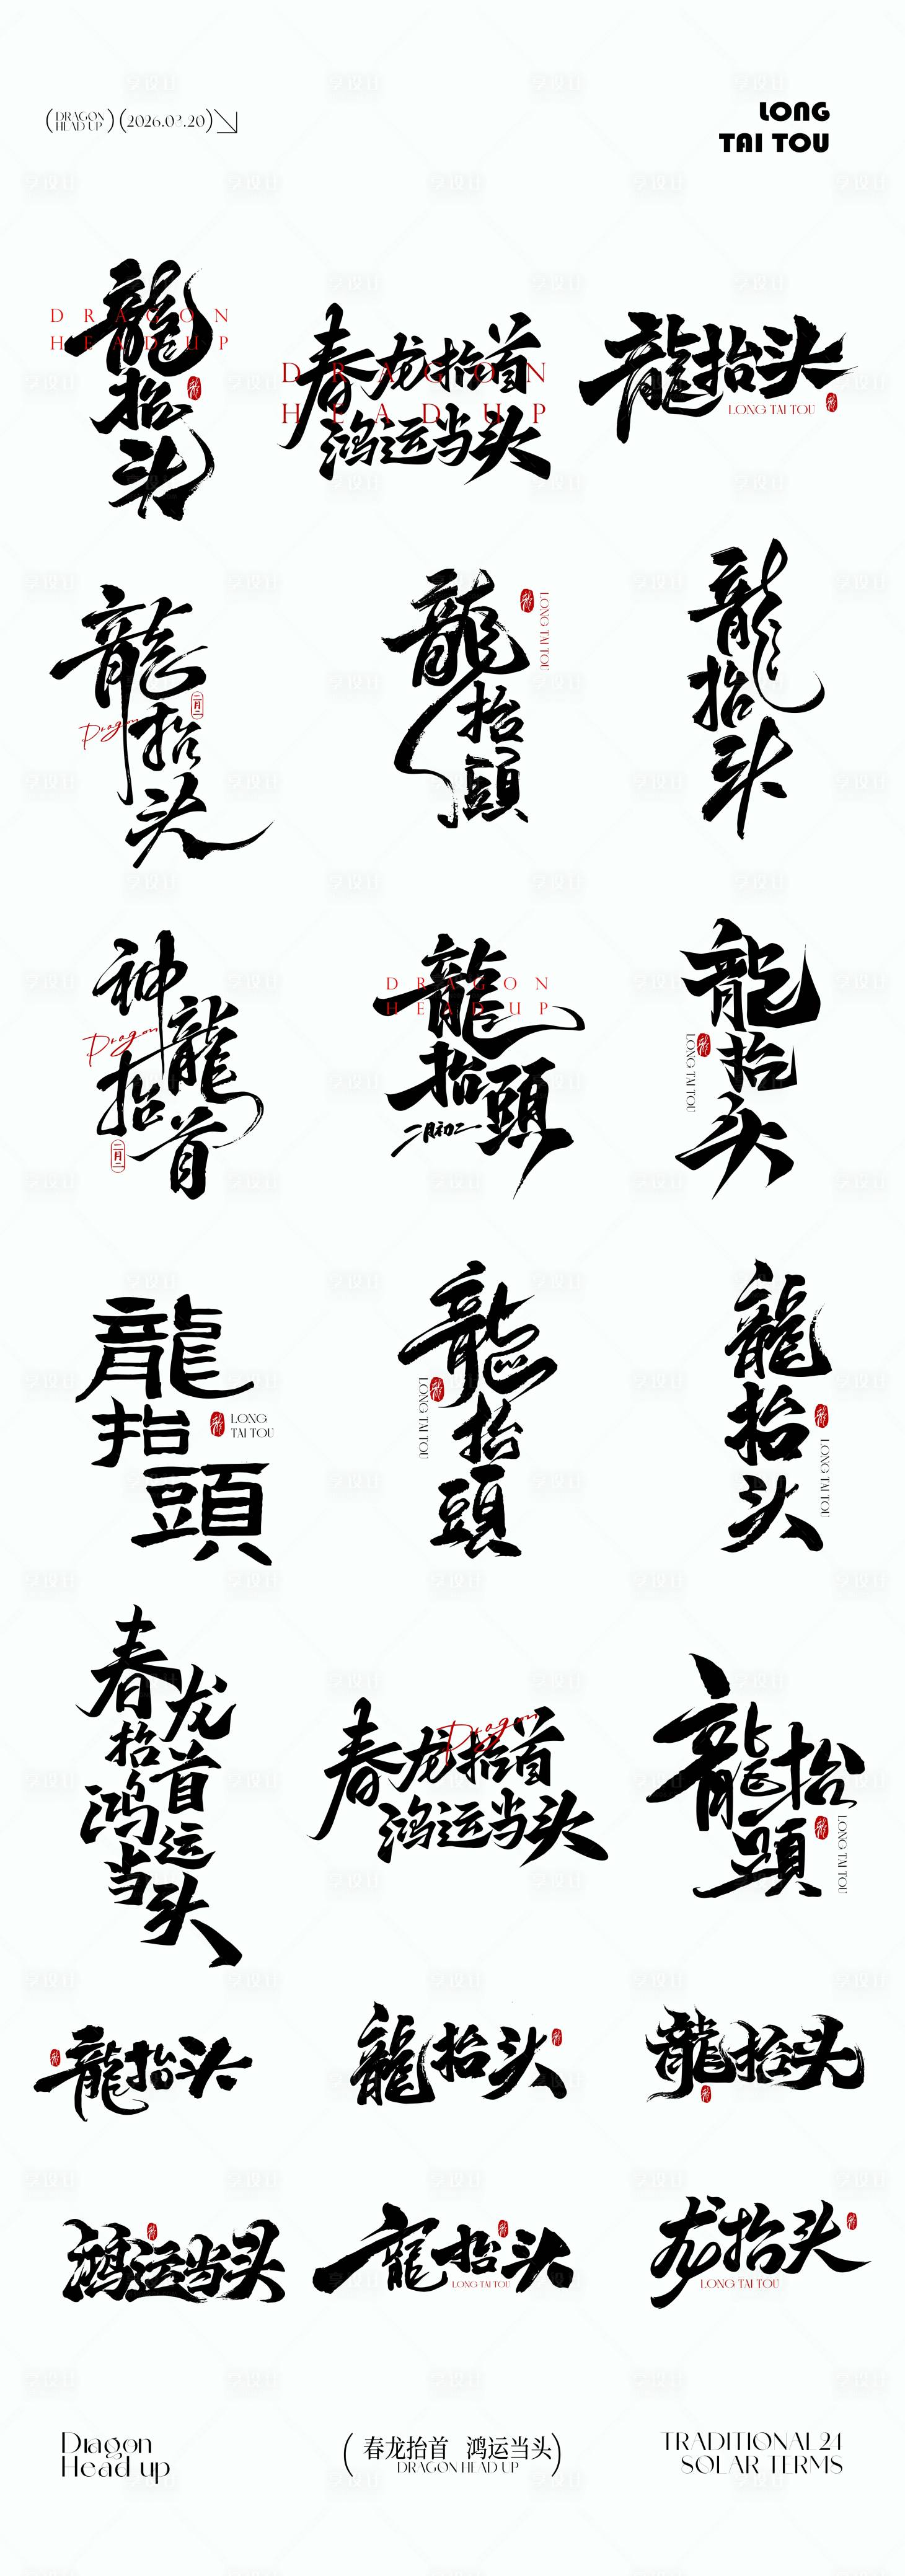 (DRAGON HEAD UP) (2026.03.20)
LONG
TAI TOU
DRAGON
HEAD UP
龍抬头
春龙抬首
鸿运当头
DRAGON
HEAD UP
龍抬头
LONG TAI TOU
龍抬头
Dragon
二月二
龍抬頭
LONG TAI TOU
龍抬头
神龍抬首
Dragon
二月二
DRAGON
HEAD UP
龍抬頭
二月初二
龍抬头
LONG TAI TOU
龍抬頭
LONG
TAI TOU
龍抬頭
LONG TAI TOU
龍抬头
LONG TAI TOU
春龙抬首鸿运当头
春龙抬首
鸿运当头
Dragon
龍抬頭
LONG TAI TOU
龍抬头
龍抬头
龍抬头
鸿运当头
龍抬头
LONG TAI TOU
龙抬头
LONG TAI TOU
Dragon
Head up
(春龙抬首 鸿运当头)
DRAGON HEAD UP
TRADITIONAL 24
SOLAR TERMS